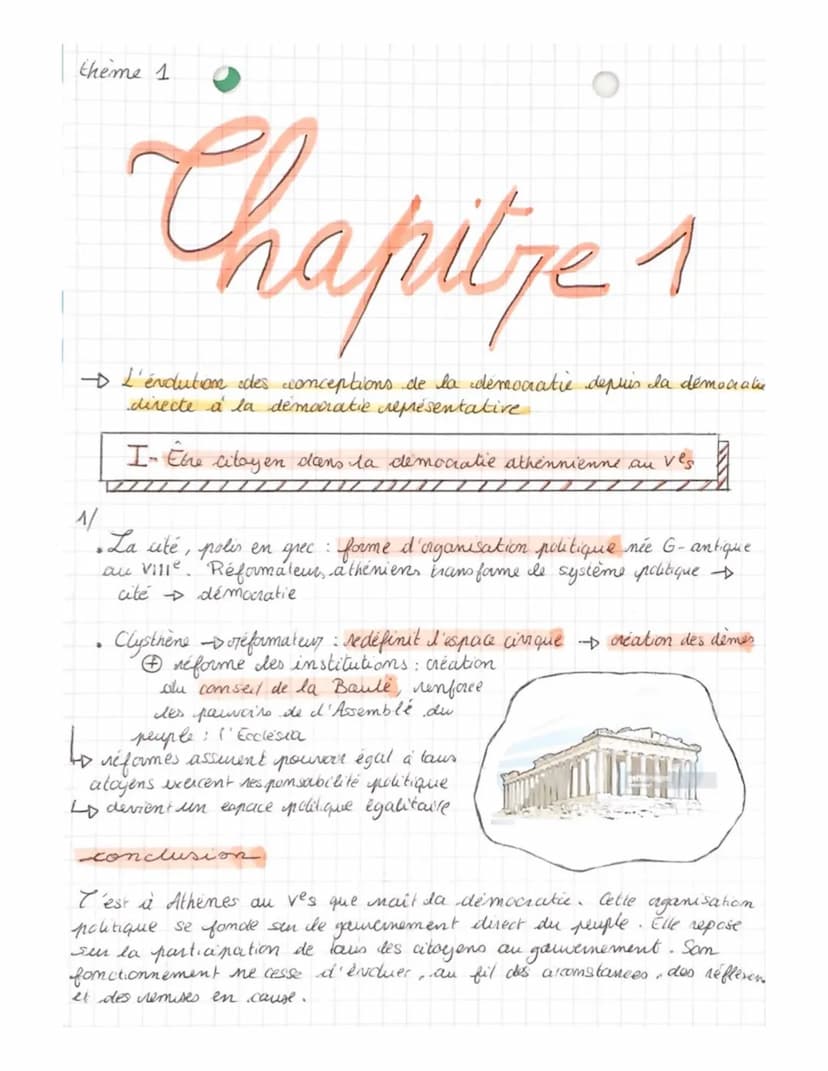 thème 1
Chapitre 1
→ L'évolution des conceptions de la démocratie depuis la démocratie
directe à la démocratie représentative
I- Être citoyen dans la démocratie athénnienne au Ves
1/
. La cité, polis en grec : forme d'organisation politique née G-antique
au VIIIe. Réformateurs athéniens transforme le système politique →
cité → démocratie
. Clysthène → réformateur : redéfinit l'espace civique → création des dèmes
⊕ réforme les institutions : création
du conseil de la Boulé, renforce
les pouvoirs de l'Assemblé du
peuple : l'Ecclésia
↳ réformes assurent pouvoir égal à tous
citoyens exercent responsabilité politique
↳ devient un espace politique égalitaire
conclusion
C'est à Athènes au Ves que nait la démocratie. Cette organisation
politique se fonde sur le gouvernement direct du peuple. Elle repose
sur la participation de tous les citoyens au gouvernement. Son
fonctionnement ne cesse d'évoluer, au fil des circonstances, des réflexion
et des remises en cause.